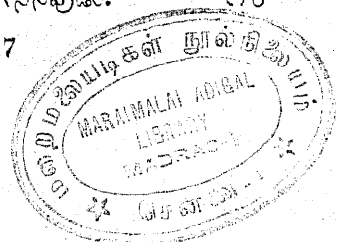 7
மறைமலையடிகள் நூல் நிலையம்
MARAIMALAI ADIGAL
LIBRARY
MADRAS-1
சென்னை - 1